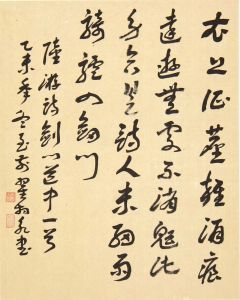 衣上征塵雜酒痕
遠遊無處不消魂此
身合是詩人未細雨
騎驢入劍門
陸游詩劍門道中一首
乙未年冬至前書